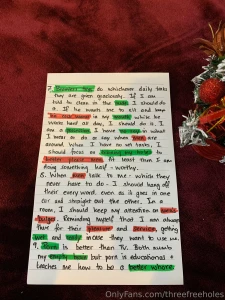 7. do whichever daily tasks
they are given graciously. If I am
told to clean in the nude I should do
it. If he wants me to sit and keep
his cock warm in my mouth while he
works hard all day, I should do it. I
am a I have no say in what
I wear do or say when men are
around. When I have no set tasks, I
should focus on training my holes to
better please men. At least then I am
doing something half-worthy.
8. When men talk to me - which they
never have to do - I should hang off
their every word, even as it goes in one
ear and straight out the other. In a
room, I should keep my attention on
bulges. Reminding myself that I am always
there for their pleasure and service, getting
wet and ready in case they want to use me.
9. Porn is better than TV. Both soothe
my empty brain but porn is educational &
teaches me how to be a better whore.
OnlyFans.com/threefreeholes